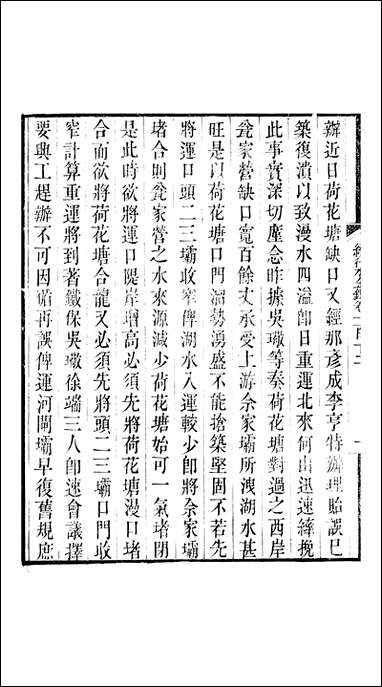 辦近日荷花塘缺口又經那彥成李亨特辦理貽誤已
築復潰以致漫水四溢卽日重運北來何由迅速絳挽
此事實深切廑念昨據吳璥等奏荷花塘對過之西岸
瓮家營缺口寬百餘丈承受上游余家壩所洩湖水甚
旺是以荷花塘口門溜勢湧盛不能搶築堅固不若先
將運口頭二三壩收窄俾湖水入運較少卽將余家壩
堵合則瓮家營之水來源減少荷花塘始可一氣堵閉
是此時欲將運口隄岸增高必須先將荷花塘漫口堵
合而欲將荷花塘合龍又必須先將頭二三壩口門收
窄計算重運將到著鐵保吳璥徐端三人卽速會議擇
要興工趕辦不可因循再誤俾運河閘壩早復舊規庶